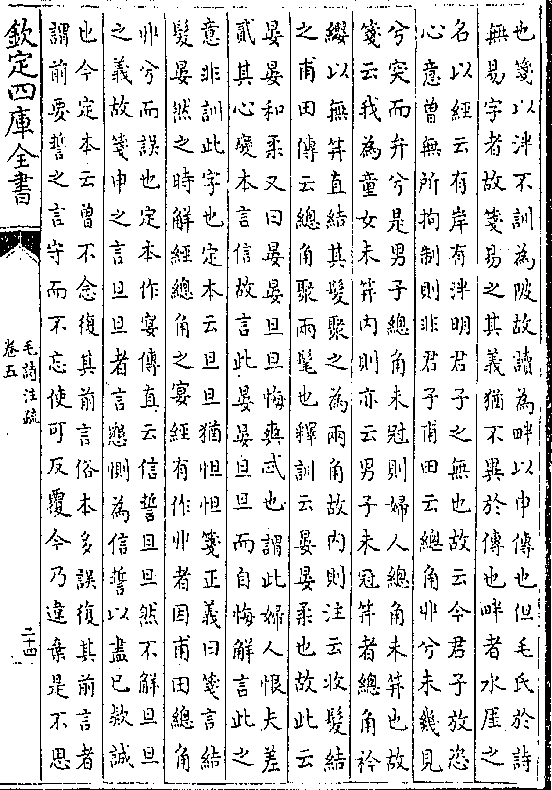 也箋以泮不訓為陂故讀為畔以申傳也但毛氏於詩
無易字者故箋易之其義猶不異於傳也畔者水厓之
名以經云有岸有泮明君子之無也故云今君子放恣
心意曾無所拘制則非君子甫田云總角丱兮未幾見
兮突而弁兮是男子總角未冠則婦人總角未笄也故
箋云我為童女未笄内則亦云男子未冠笄者總角衿
纓以無笄直結其髮聚之為兩角故内則注云收髮結
之甫田傳云總角聚兩髦也釋訓云晏晏柔也故此云
晏晏和柔又曰晏晏旦旦悔爽忒也謂此婦人恨夫差
貳其心變本言信故言此晏晏旦旦而自悔解言此之
意非訓此字也定本云旦旦猶怛怛箋正義曰箋言結
髮晏然之時解經總角之宴經有作丱者因甫田總角
丱兮而誤也定本作宴傳直云信誓旦旦然不解旦旦
之義故箋申之言旦旦者言懇惻為信誓以盡已欵誠
也今定本云曽不念復其前言俗本多誤復其前言者
謂前要誓之言守而不忘使可反覆今乃違棄是不思
欽定四庫全書
毛詩注疏
卷五
二十四